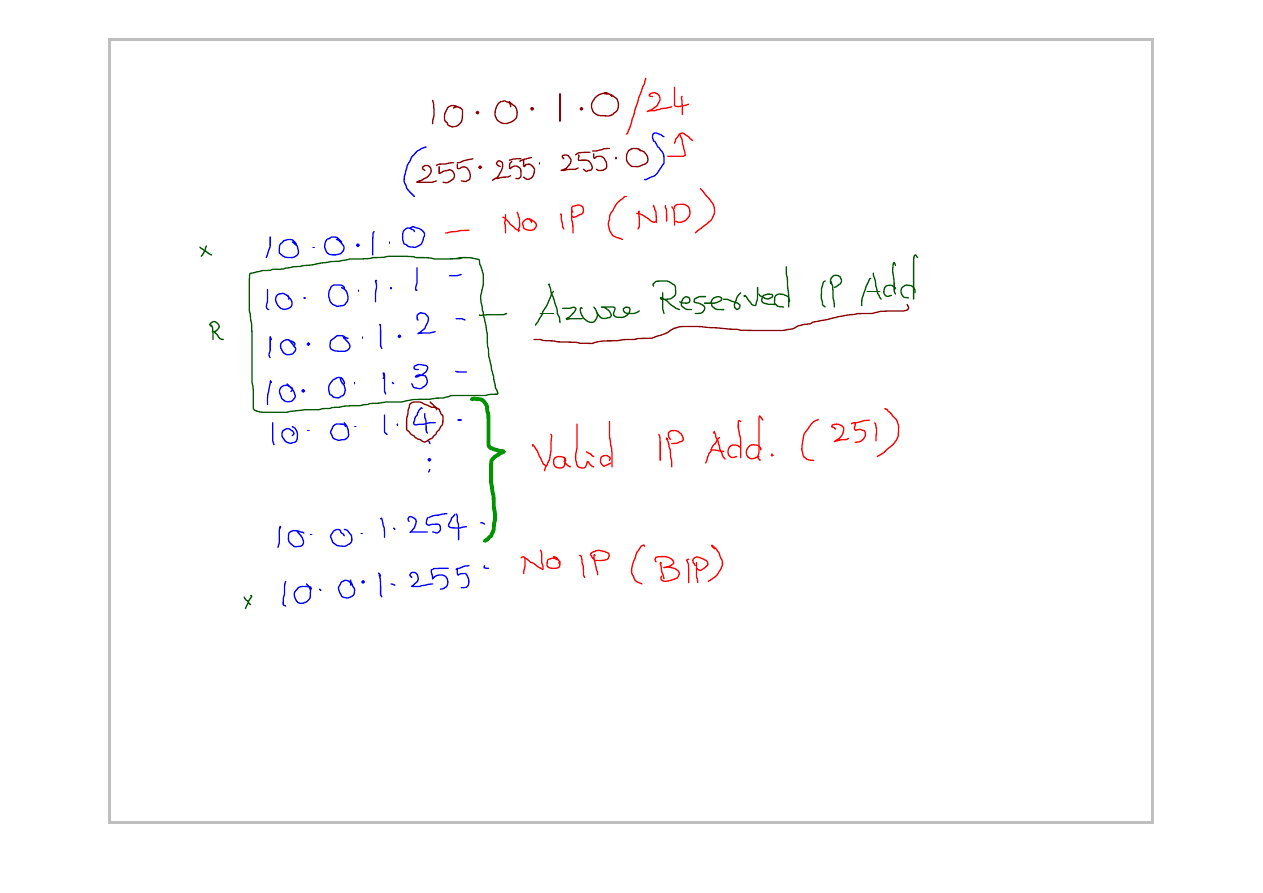 10.0.1.0/24
(255.255.255.0)
x 10.0.1.0 - No IP (NID)
10.0.1.1 -
Azure Reserved IP Add
R 10.0.1.2 -
10.0.1.3 -
10.0.1.4 -
:
Valid IP Add. (251)
10.0.1.254 -
x 10.0.1.255 - No IP (BIP)